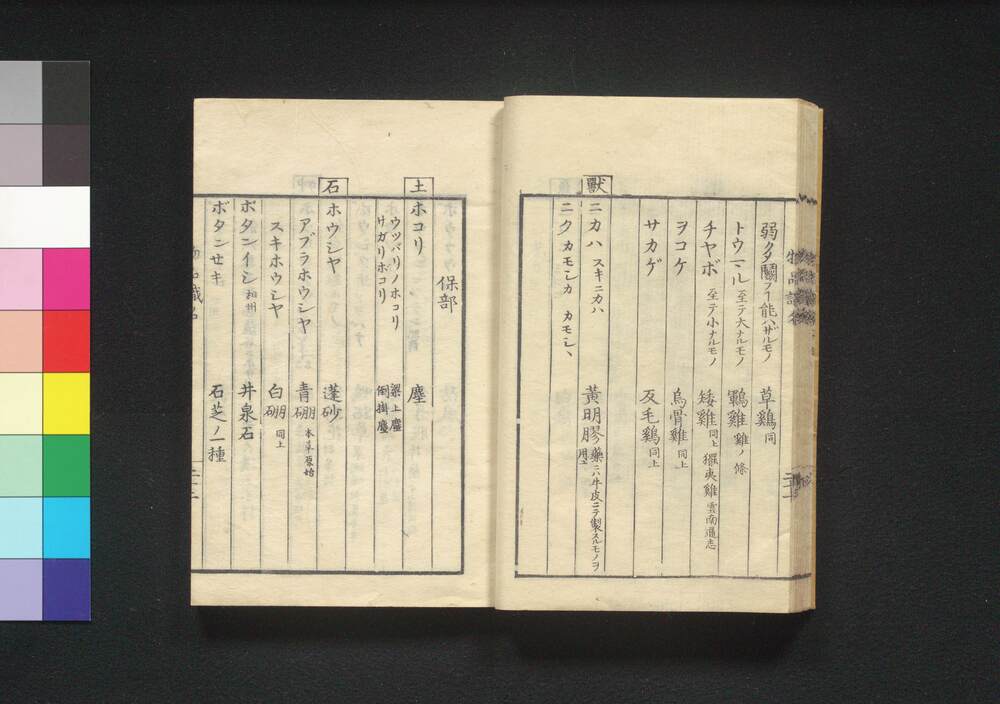 弱クタ鬭フ丁能ハザルモノ　草鷄 同
トウマル 至テ大ナルモノ　鶤雞 雞ノ條
チヤボ 至テ小ナルモノ　矮雞 同上 玀夷雞 雲南通志
ヲコケ　烏骨雞 同上
サカゲ　反毛鷄 同上
獸
ニカハ スキニカハ　黃明膠 藥ニハ牛皮ニテ製スルモノヲ用ユ
ニク カモシカ カモシヽ
保部
土
ホコリ　塵
ウツバリノホコリ　梁上塵
サガリホコリ　倒掛塵
石
ホウシヤ　蓬砂
アブラホウシヤ　青硼 本草原始
スキホウシヤ　白硼 同上
ボタンイシ 和州　井泉石
ボタンセキ　石芝ノ一種